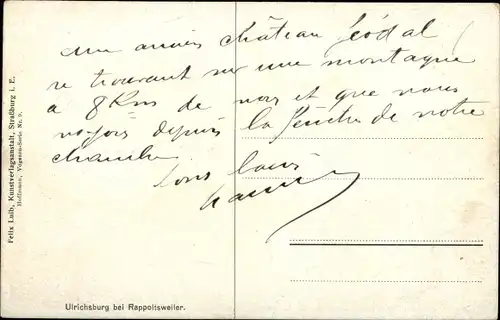 Felix Luib, Kunstverlagsanstalt, Straßburg i. E.
Hoffmann, Vogesen-Serie No. 9.
un ancien château féodal
se trouvant sur une montagne
à 8 Kms de nous et que nous
voyons depuis la fenêtre de notre
chambre
Ulrichsburg bei Rappoltsweiler.